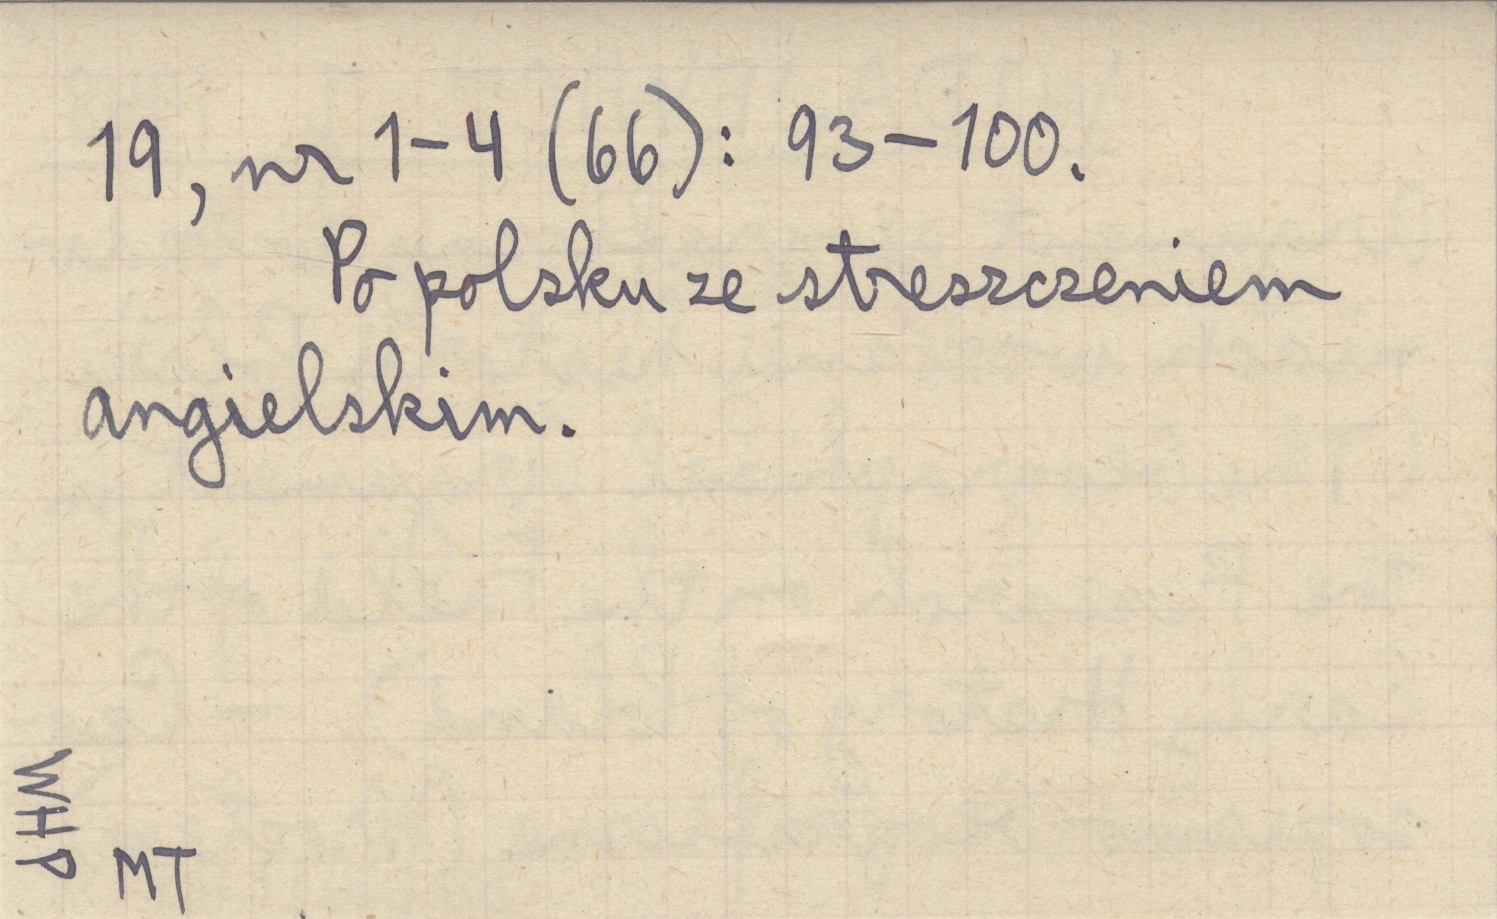 19, nr 1-4 (66): 93-100.
Po polsku ze streszczeniem
angielskim.
WHP
MT